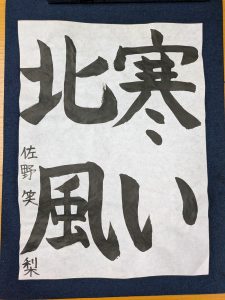 寒い
北風
佐野笑梨